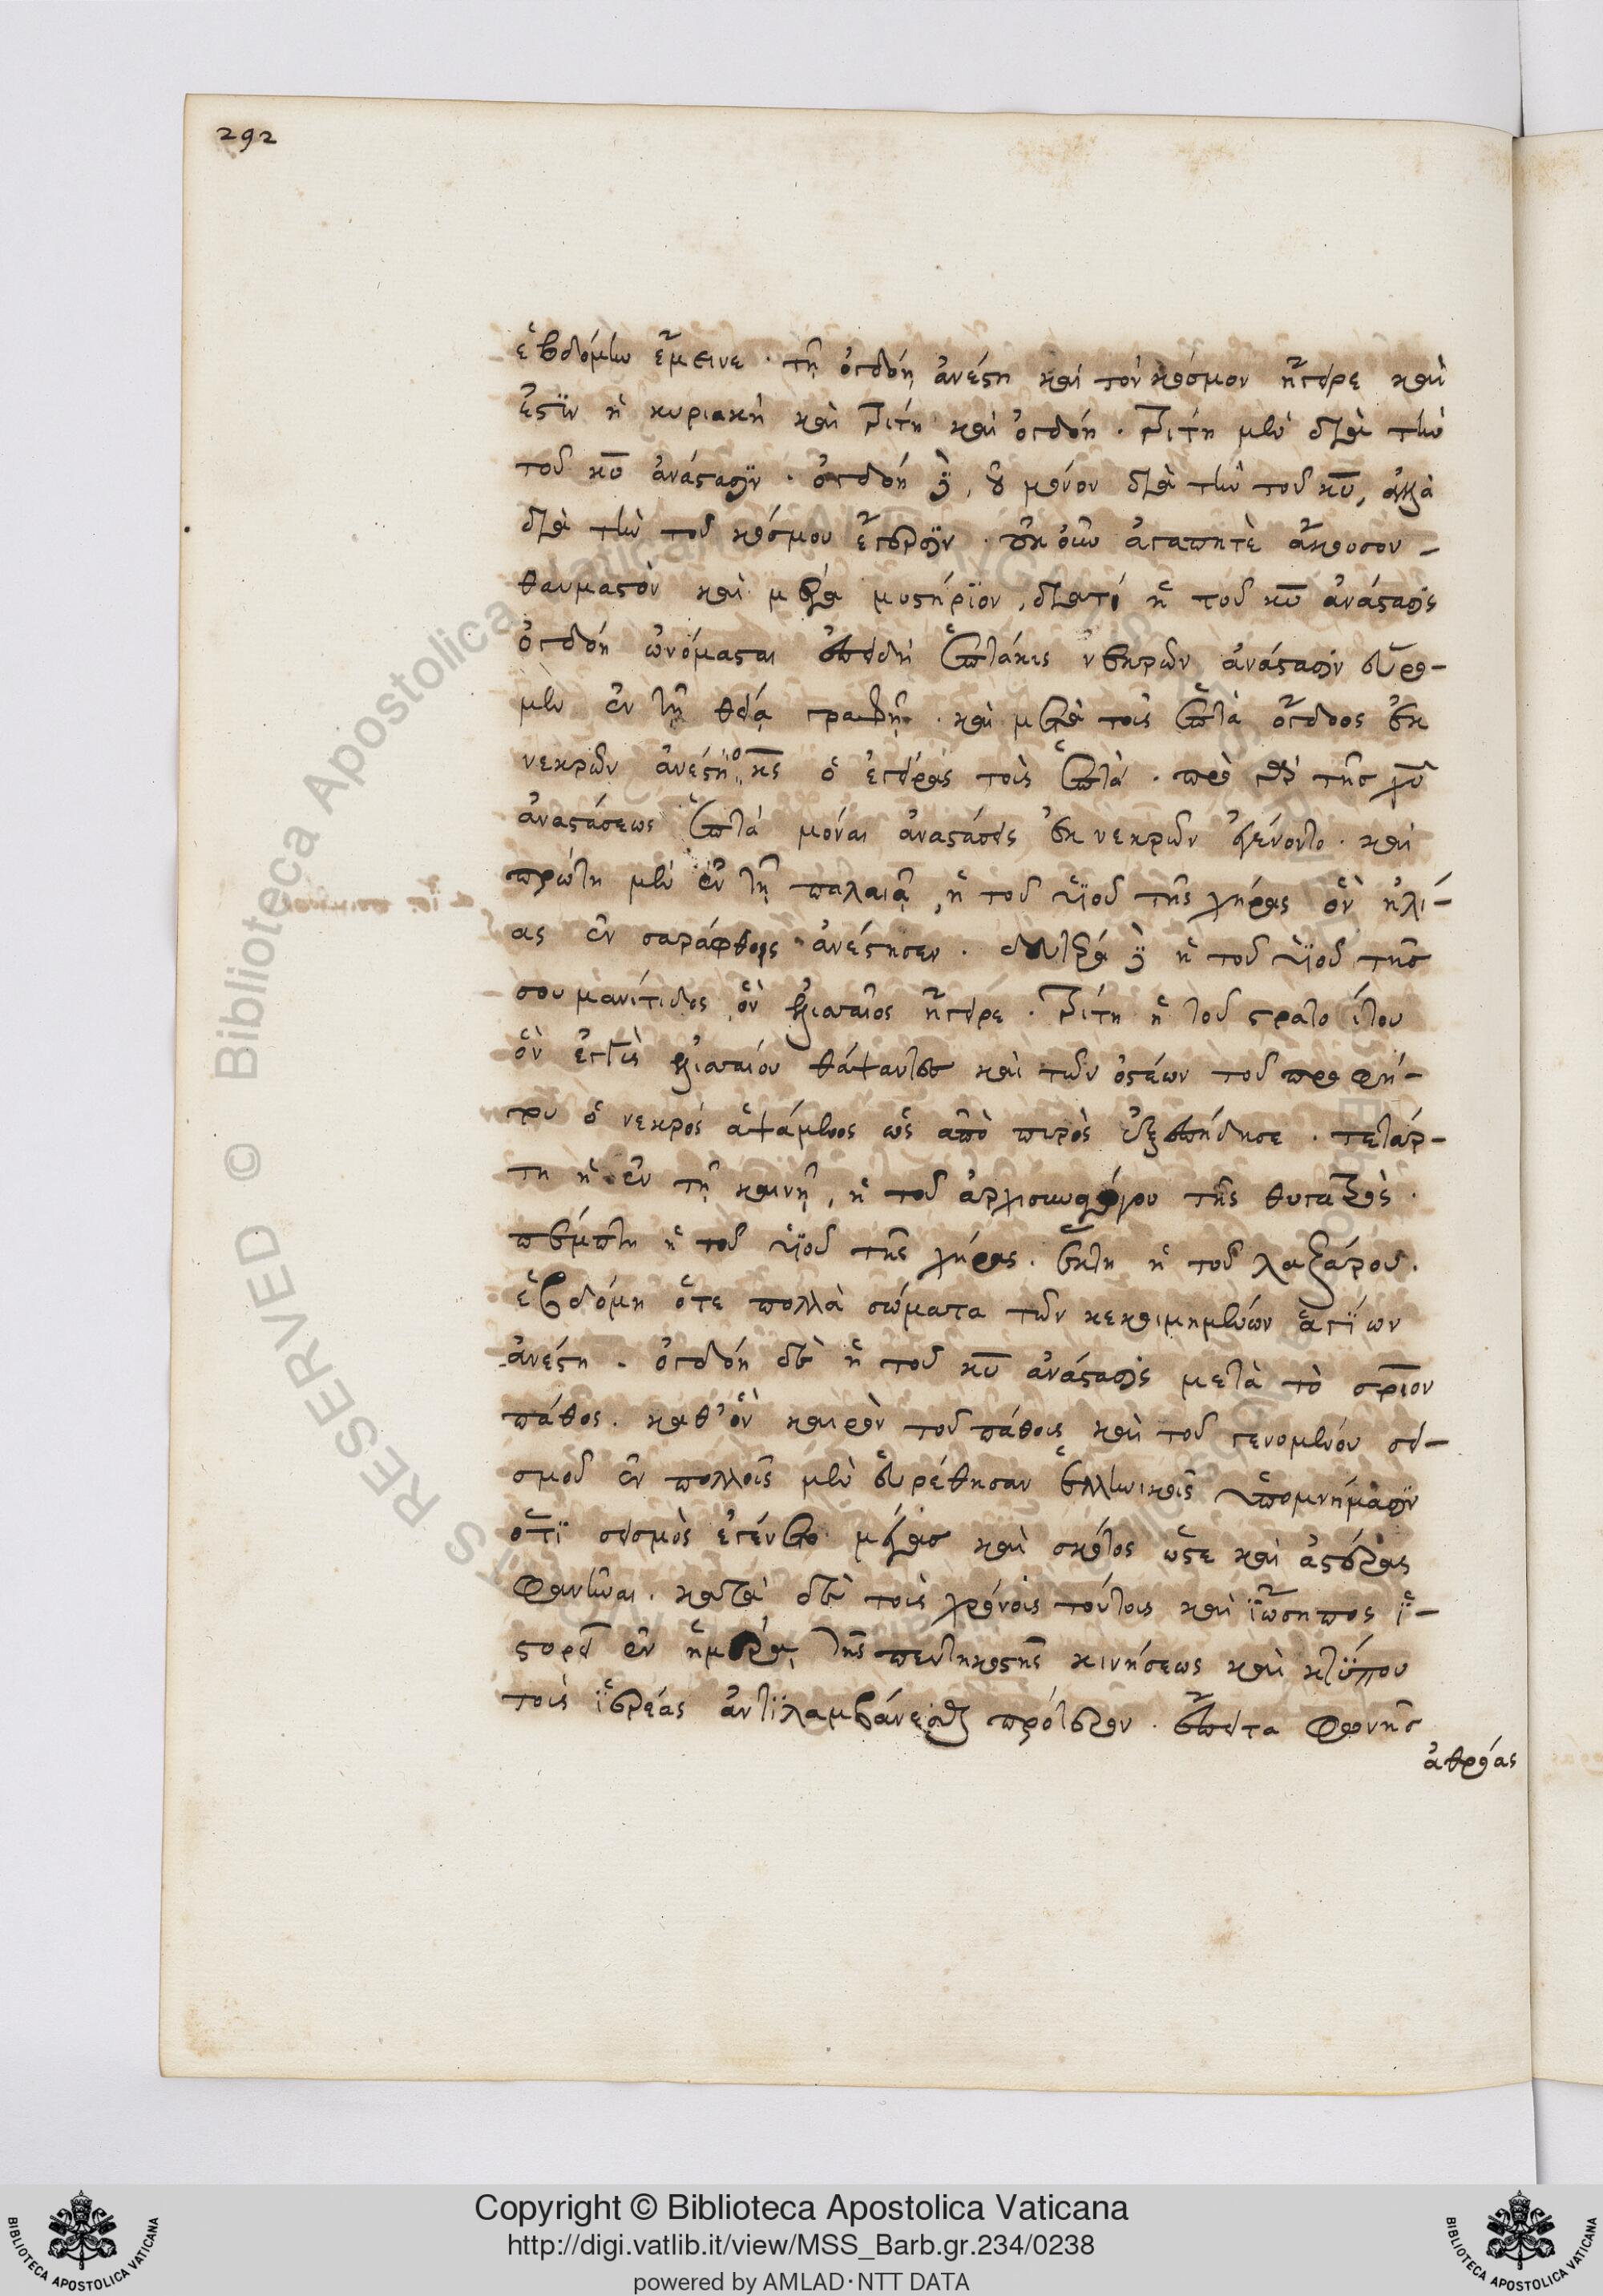 292
ἑβδόμην ἔμεινε. τῇ ὀγδόῃ ἀνέστη καὶ τὸν κόσμον ἤγειρε καὶ
ἐστὶν ἡ κυριακὴ καὶ τρίτη καὶ ὀγδόη. τρίτη μὲν διὰ τὴν
τοῦ κυ ἀνάστασιν. ὀγδόη δὲ, οὐ μόνον διὰ τὴν τοῦ κυ, ἀλλὰ
διὰ τὴν τοῦ κόσμου ἔγερσιν. οὐκοῦν ἀγαπητὲ ἄκουσον
θαυμαστὸν καὶ μέγα μυστήριον, διατί ἡ τοῦ κυ ἀνάστασις
ὀγδόη ὠνόμασται ἐπειδὴ ἑπτάκις νεκρῶν ἀνάστασιν εὕρο-
μεν ἐν τῇ θείᾳ γραφῇ. καὶ μετὰ τοὺς ἑπτὰ ὄγδοος ἐκ
νεκρῶν ἀνέστη ὁ κς ὁ ἐγείρας τοὺς ἑπτά. πρὸ γὰρ τῆς χυ
ἀναστάσεως ἑπτά μόναι ἀναστάσεις ἐκ νεκρῶν ἐγένοντο. καὶ
πρώτη μὲν ἐν τῇ παλαιᾷ, ἡ τοῦ υἱοῦ τῆς χήρας ὃν ἠλί-
ας ἐν σαράφθοις ἀνέστησεν. δευτέρα δὲ ἡ τοῦ υἱοῦ τῆς
σουμανίτιδος, ὃν ἐλισσαῖος ἤγειρε. τρίτη ἡ τοῦ στρατοίτου
ὃν ἐγγὺς ἐλισσαίου θάψαντες καὶ τῶν ὀστέων τοῦ προφή-
του ὁ νεκρὸς ἁψάμενος ὡς ἀπὸ πυρὸς ἐξεπήδησε. τετάρ-
τη ἡ ἐν τῇ καινῇ, ἡ τοῦ ἀρχισυναγώγου τῆς θυγατρός.
πέμπτη ἡ τοῦ υἱοῦ τῆς χήρας. ἕκτη ἡ τοῦ λαζάρου.
ἑβδόμη ὅτε πολλὰ σώματα τῶν κεκοιμημένων ἁγίων
ἀνέστη. ὀγδόη δὲ ἡ τοῦ κυ ἀνάστασις μετὰ τὸ σριον
πάθος. καθ' ὃν καιρὸν τοῦ πάθους καὶ τοῦ γενομένου σει-
σμοῦ ἐν πολλοῖς μὲν εὑρέθησαν ἑλληνικοῖς ὑπομνήμασιν
ὅτι σεισμὸς ἐγένετο μέγας καὶ σκότος ὥστε καὶ ἀστέρας
φανῆναι. κατὰ δὲ τοὺς χρόνους τούτους καὶ ἰώσηπος ἱ-
στορεῖ ἐν ἡμέρᾳ τῆς πεντηκοστῆς κινήσεως καὶ κτύπου
τοὺς ἱερέας ἀντιλαμβάνεσθαι πρότερον. ἔπειτα φωνῆς
ἀθρόας